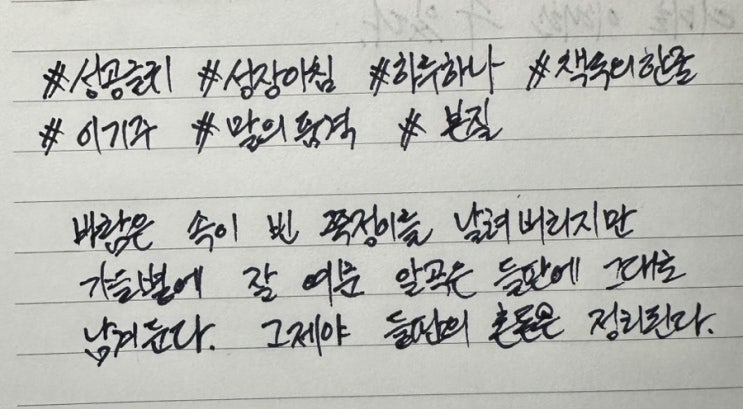 #성공글귀 #성장아침 #하루하나 #책속의한줄
#이기주 #말의품격 #본질
바람은 속이 빈 쭉정이들 날려버리지만
가을볕에 잘 여문 알곡은 들판에 그대로
남겨둔다. 그제야 들판의 혼돈은 정리된다.